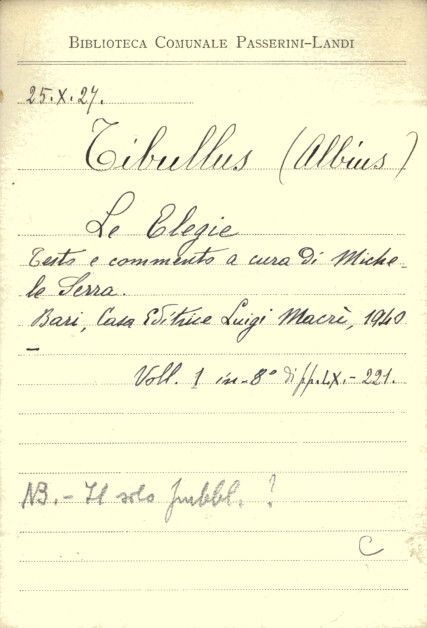 BIBLIOTECA COMUNALE PASSERINI-LANDI
25.X.27.
Tibullus (Albius)
Le Elegie
Testo e commento a cura di Miche-
le Serra.
Bari, Casa Editrice Luigi Macrì, 1940
–
Voll. 1 in-8° di pp. LX.- 221.
NB. - Il solo pubbl. ?
C